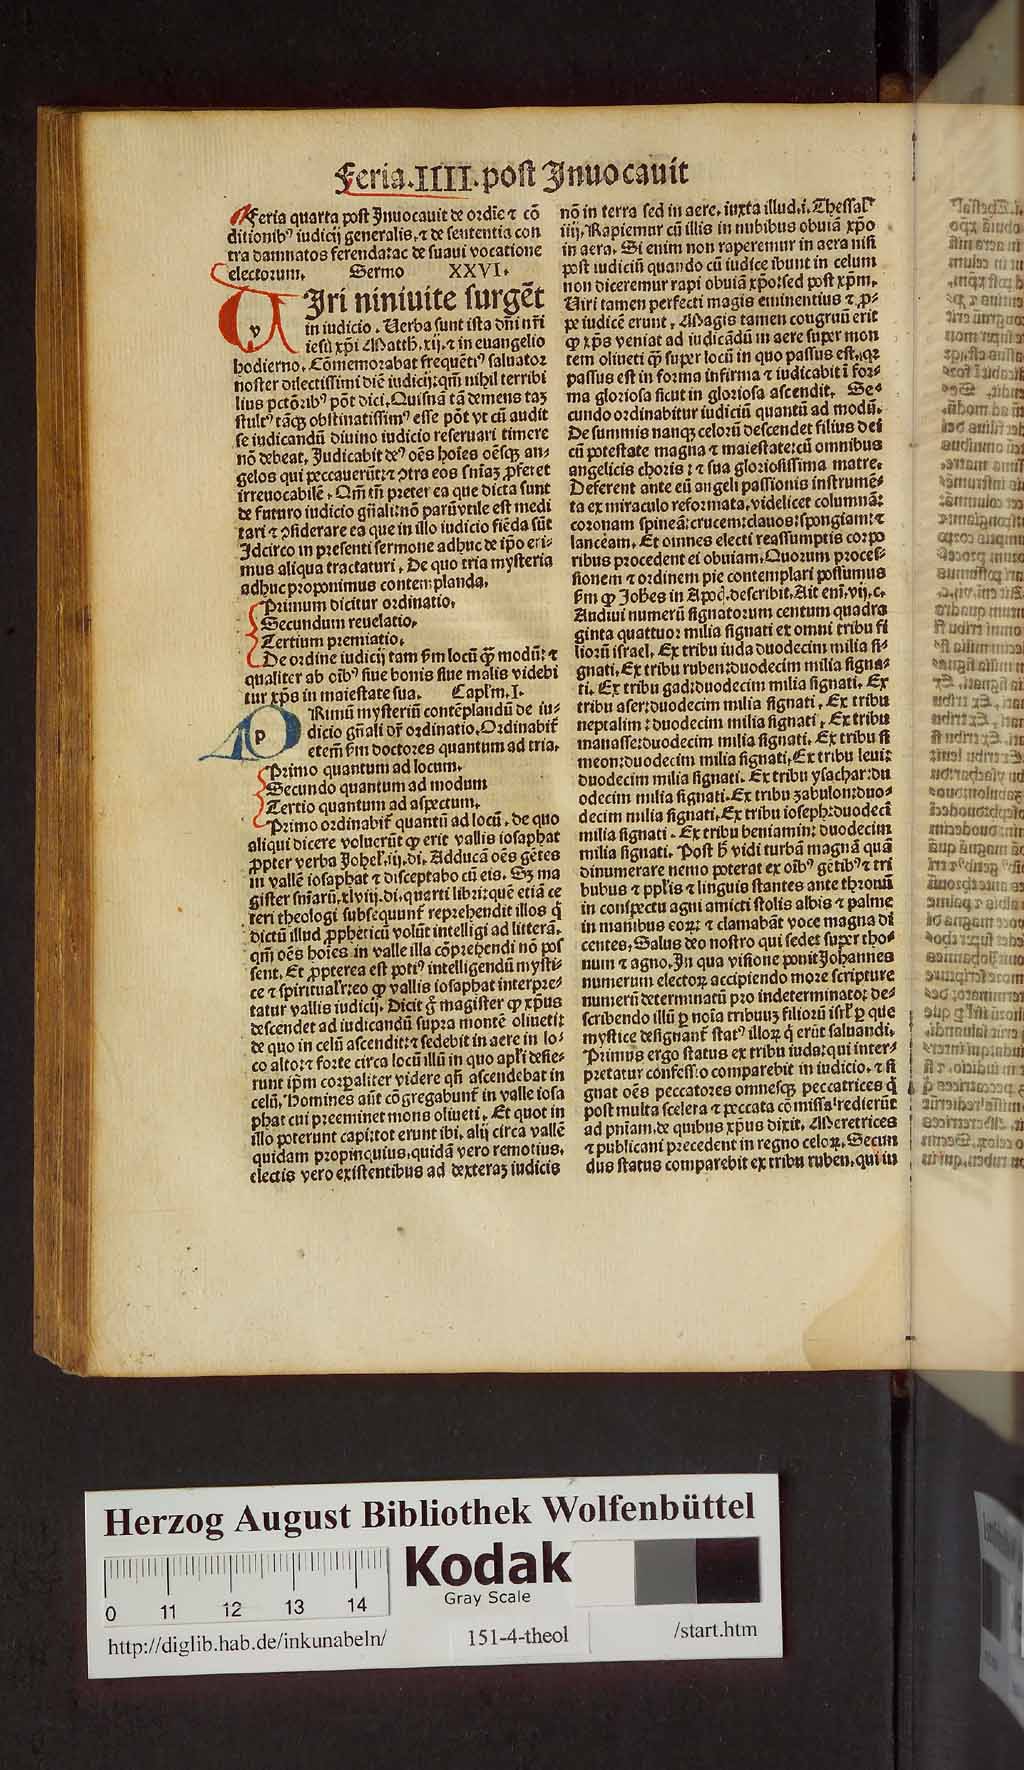 Feria.IIII.post Inuocauit
Feria quarta post Inuocauit de ordīe ⁊ cō
ditionibꝰ iudicij generalis, ⁊ de sententia con
tra damnatos ferenda:ac de suaui vocatione
electorum. Sermo XXVI.
VIri niniuite surgēt
in iudicio. Uerba sunt ista dn̄i nr̄i
iesū xp̄i Matth. xij. ⁊ in euangelio
hodierno. Cōmemorabat frequētiꝰ saluator
noster dilectissimi diē iudicij: qm̄ nihil terribi
lius pctōribꝰ pōt dici. Quisnā tā demens taꝫ
stultꝰ tāqꝫ obstinatissimꝰ esse pōt vt cū audit
se iudicandū diuino iudicio reseruari timere
nō debeat. Iudicabit deꝰ oēs hoīes oēsqꝫ an⸗
gelos qui peccauerūt: ⁊ ꝯtra eos sn̄iaꝫ ꝓferet
irreuocabilē. Qm̄ tn̄ preter ea que dicta sunt
de futuro iudicio gn̄ali: nō parū vtile est medi
tari ⁊ ꝯsiderare ea que in illo iudicio fiēda sūt
Idcirco in presenti sermone adhuc de ip̄o eri⸗
mus aliqua tractaturi. De quo tria mysteria
adhuc proponimus contemplanda.
Primum dicitur ordinatio.
Secundum reuelatio.
Tertium premiatio.
De ordine iudicij tam s̄m locū q̄ꝫ modū: ⁊
qualiter ab oībꝰ siue bonis siue malis videbi
tur xp̄s in maiestate sua. Capl̄m. I.
PRimū mysteriū contēplandū de iu⸗
dicio gn̄ali dr̄ ordinatio. Ordinabit̄
etem̄ s̄m doctores quantum ad tria.
Primo quantum ad locum.
Secundo quantum ad modum
Tertio quantum ad aspectum.
Primo ordinabit̄ quantū ad locū. de quo
aliqui dicere voluerūt ꝙ erit vallis iosaphat
ꝓpter verba Iohel̄. iij. di. Adducā oēs gētes
in vallē iosaphat ⁊ disceptabo cū eis. Sꝫ ma
gister sn̄iarū. xlviij. di. quarti libri: quē etiā ce
teri theologi subsequunt̄ reprehendit illos q̄
dictū illud ꝓpheticū volūt intelligi ad litterā.
qm̄ oēs hoīes in valle illa cōprehendi nō pos
sent. Et ꝓpterea est potiꝰ intelligendū mysti⸗
ce ⁊ spiritual̄r: eo ꝙ vallis iosaphat interpre⸗
tatur vallis iudicij. Dicit g̊ magister ꝙ xp̄us
descendet ad iudicandū supra montē oliueti:
de quo in celū ascendit: ⁊ sedebit in aere in lo⸗
co alto: ⁊ forte circa locū illū in quo apl̄i desie⸗
runt ip̄m corꝑaliter videre qn̄ ascendebat in
celū. Homines aūt cōgregabunt̄ in valle iosa
phat cui preeminet mons oliueti. Et quot in
illo poterunt capi: tot erunt ibi. alij circa vallē
quidam propinquius. quidā vero remotius.
electis vero existentibus ad dexteraꝫ iudicis
nō in terra sed in aere. iuxta illud. i. Thessal̄
iiij. Rapiemur cū illis in nubibus obuiā xp̄o
in aera. Si enim non raperemur in aera nisi
post iudiciū quando cū iudice ibunt in celum
non diceremur rapi obuiā xp̄o: sed post xp̄m.
Uiri tamen perfecti magis eminentius ⁊ ꝓ⸗
pe iudicē erunt. Magis tamen congruū erit
ꝙ xp̄s veniat ad iudicādū in aere super mon
tem oliueti q̄ꝫ super locū in quo passus est. qꝛ
passus est in forma infirma ⁊ iudicabit ī for⸗
ma gloriosa sicut in gloriosa ascendit. Se⸗
cundo ordinabitur iudiciū quantū ad modū.
De summis nanqꝫ celorū descendet filius dei
cū potestate magna ⁊ maiestate: cū omnibus
angelicis choris: ⁊ sua gloriosissima matre.
Deferent ante eū angeli passionis instrumē⸗
ta ex miraculo reformata. videlicet columnā:
coronam spineā: crucem: clauos: spongiam: ⁊
lanceam. Et omnes electi reassumptis corpo
ribus procedent ei obuiam. Quorum proces⸗
sionem ⁊ ordinem pie contemplari possumus
s̄m ꝙ Joh̄es in Apoc̄. describit. Ait eni᷒. vij. c.
Audiui numerū signatorum centum quadra
ginta quattuor milia signati ex omni tribu fi
liorū israel. Ex tribu iuda duodecim milia si⸗
gnati. Ex tribu ruben: duodecim milia signa⸗
ti. Ex tribu gad: duodecim milia signati. Ex
tribu aser: duodecim milia signati. Ex tribu
neptalim: duodecim milia signati. Ex tribu
manasse: duodecim milia signati. Ex tribu si
meon: duodecim milia signati. Ex tribu leui:
duodecim milia signati. Ex tribu ysachar: du
odecim milia signati. Ex tribu zabulon: duo⸗
decim milia signati. Ex tribu ioseph: duodecī
milia signati. Ex tribu beniamin: duodecim
milia signati. Post h̄ vidi turbā magnā quā
dinumerare nemo poterat ex oībꝰ gētibꝰ ⁊ tri
bubus ⁊ ppl̄is ⁊ linguis stantes ante thronū
in conspectu agni amicti stolis albis ⁊ palme
in manibus eoꝝ: ⁊ clamabāt voce magna di
centes. Salus deo nostro qui sedet super thro⸗
num ⁊ agno. In qua visione ponit Iohannes
numerum electoꝝ accipiendo more scripture
numerū determinatū pro indeterminato: de⸗
scribendo illū ꝑ noīa tribuuꝫ filiorū isrl̄ ꝑ que
mystice designant̄ statꝰ illoꝝ q̄ erūt saluandi.
Primus ergo status ex tribu iuda: qui inter⸗
pretatur confessio comparebit in iudicio. ⁊ si
gnat oēs peccatores omnesqꝫ peccatrices q̄
post multa scelera ⁊ peccata cōmissa redierūt
ad pn̄iam. de quibus xp̄us dixit. Meretrices
⁊ publicani precedent in regno celoꝝ. Secun
dus status comparebit ex tribu ruben. qui in
Herzog August Bibliothek Wolfenbüttel
Kodak
Gray Scale
0 11 12 13 14
http://diglib.hab.de/inkunabeln/ 151-4-theol /start.htm